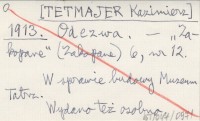 [TETMAJER Kazimierz]
1913. Odezwa. — "Za-
kopane" (Zakopane) 6, nr 12.
W sprawie budowy Muzeum
Tatrz.
Wydano też osobno.